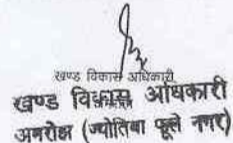 खण्ड विकास अधिकारी
खण्ड विकास अधिकारी
अमरोहा (ज्योतिबा फूले नगर)